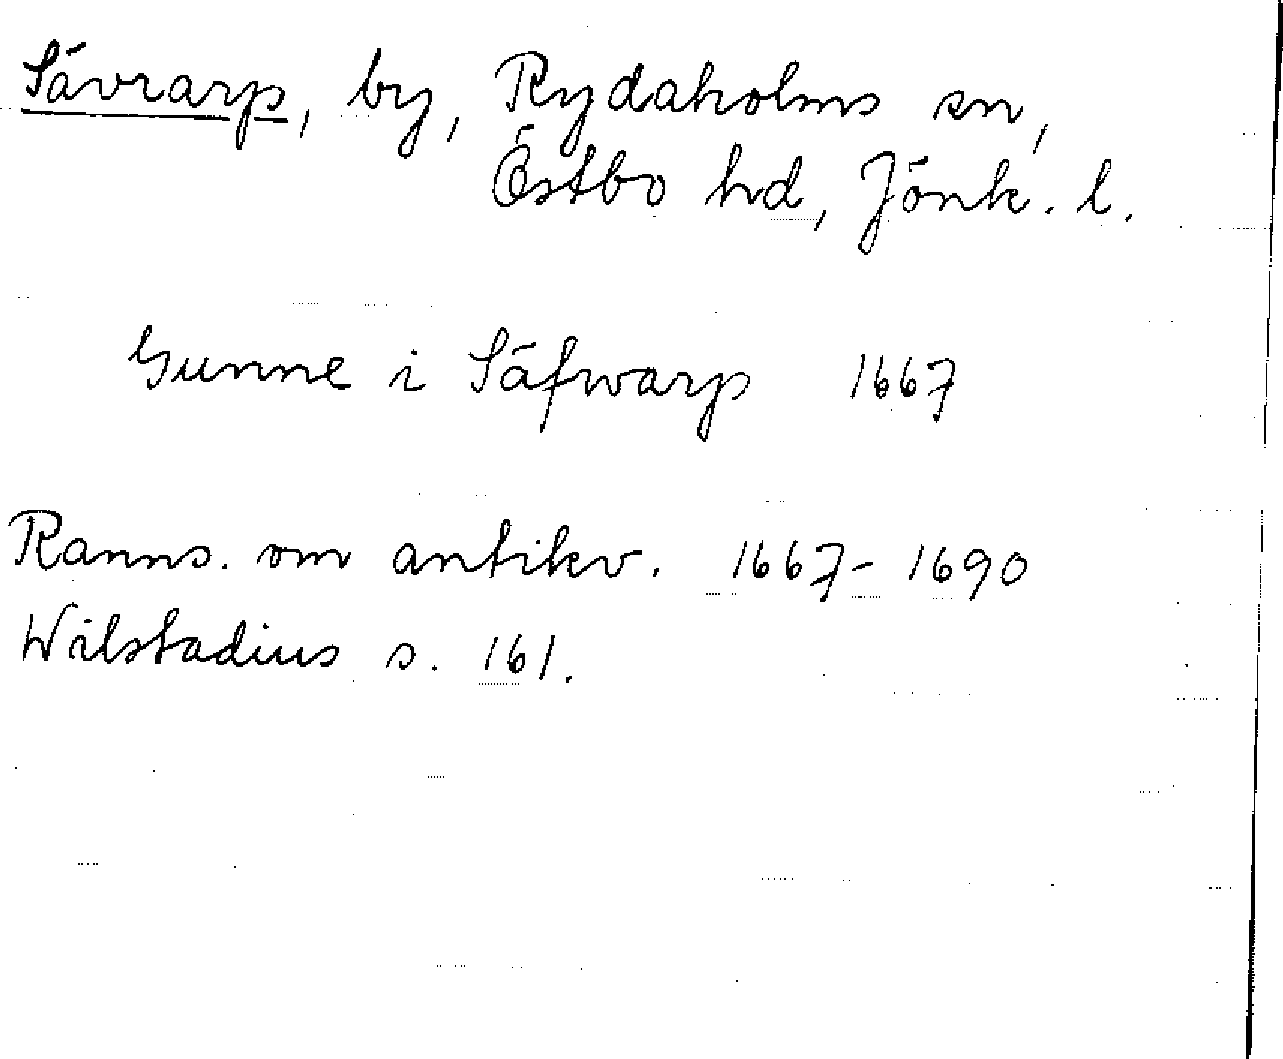 Sävrarp, by, Rydaholms sn,
Östbo hd, Jönk. l.
Gunne i Säfwarp 1667
Ranns. om antikv. 1667-1690
Wilstadius s. 161.